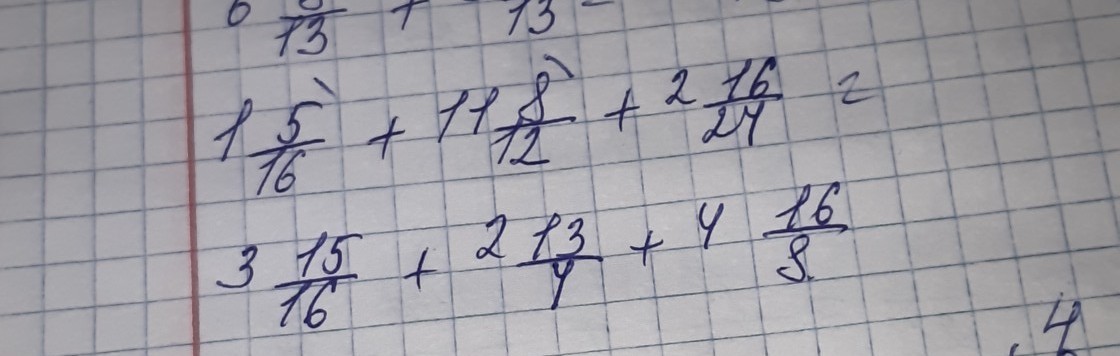 6 8/13 + /13 =
1 5/16 + 11 8/12 + 2 16/24 =
3 15/16 + 2 13/4 + 4 16/8
4